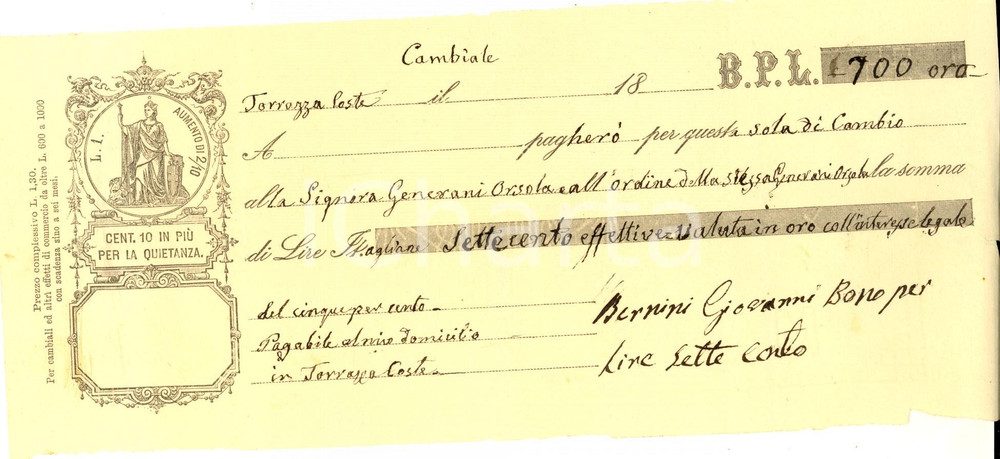 Cambiale
B.P.L. L 700 oro
Torrazza Coste il 18
A pagherò per questa sola di Cambio
alla Signora Generani Orsola e all'ordine della stessa Generani Orsola la somma
di Lire Italiane Settecento effettive valuta in oro coll'interesse legale
del cinque per cento
Pagabile al mio domicilio
in Torrazza Coste
Bernini Giovanni Bono per
Lire Sette Cento
L. 1.
AUMENTO DI 2/10
CENT. 10 IN PIÙ
PER LA QUIETANZA.
Prezzo complessivo L. 1,30.
Per cambiali ed altri effetti di commercio da oltre L. 600 a 1000
con scadenza sino a sei mesi.
charta